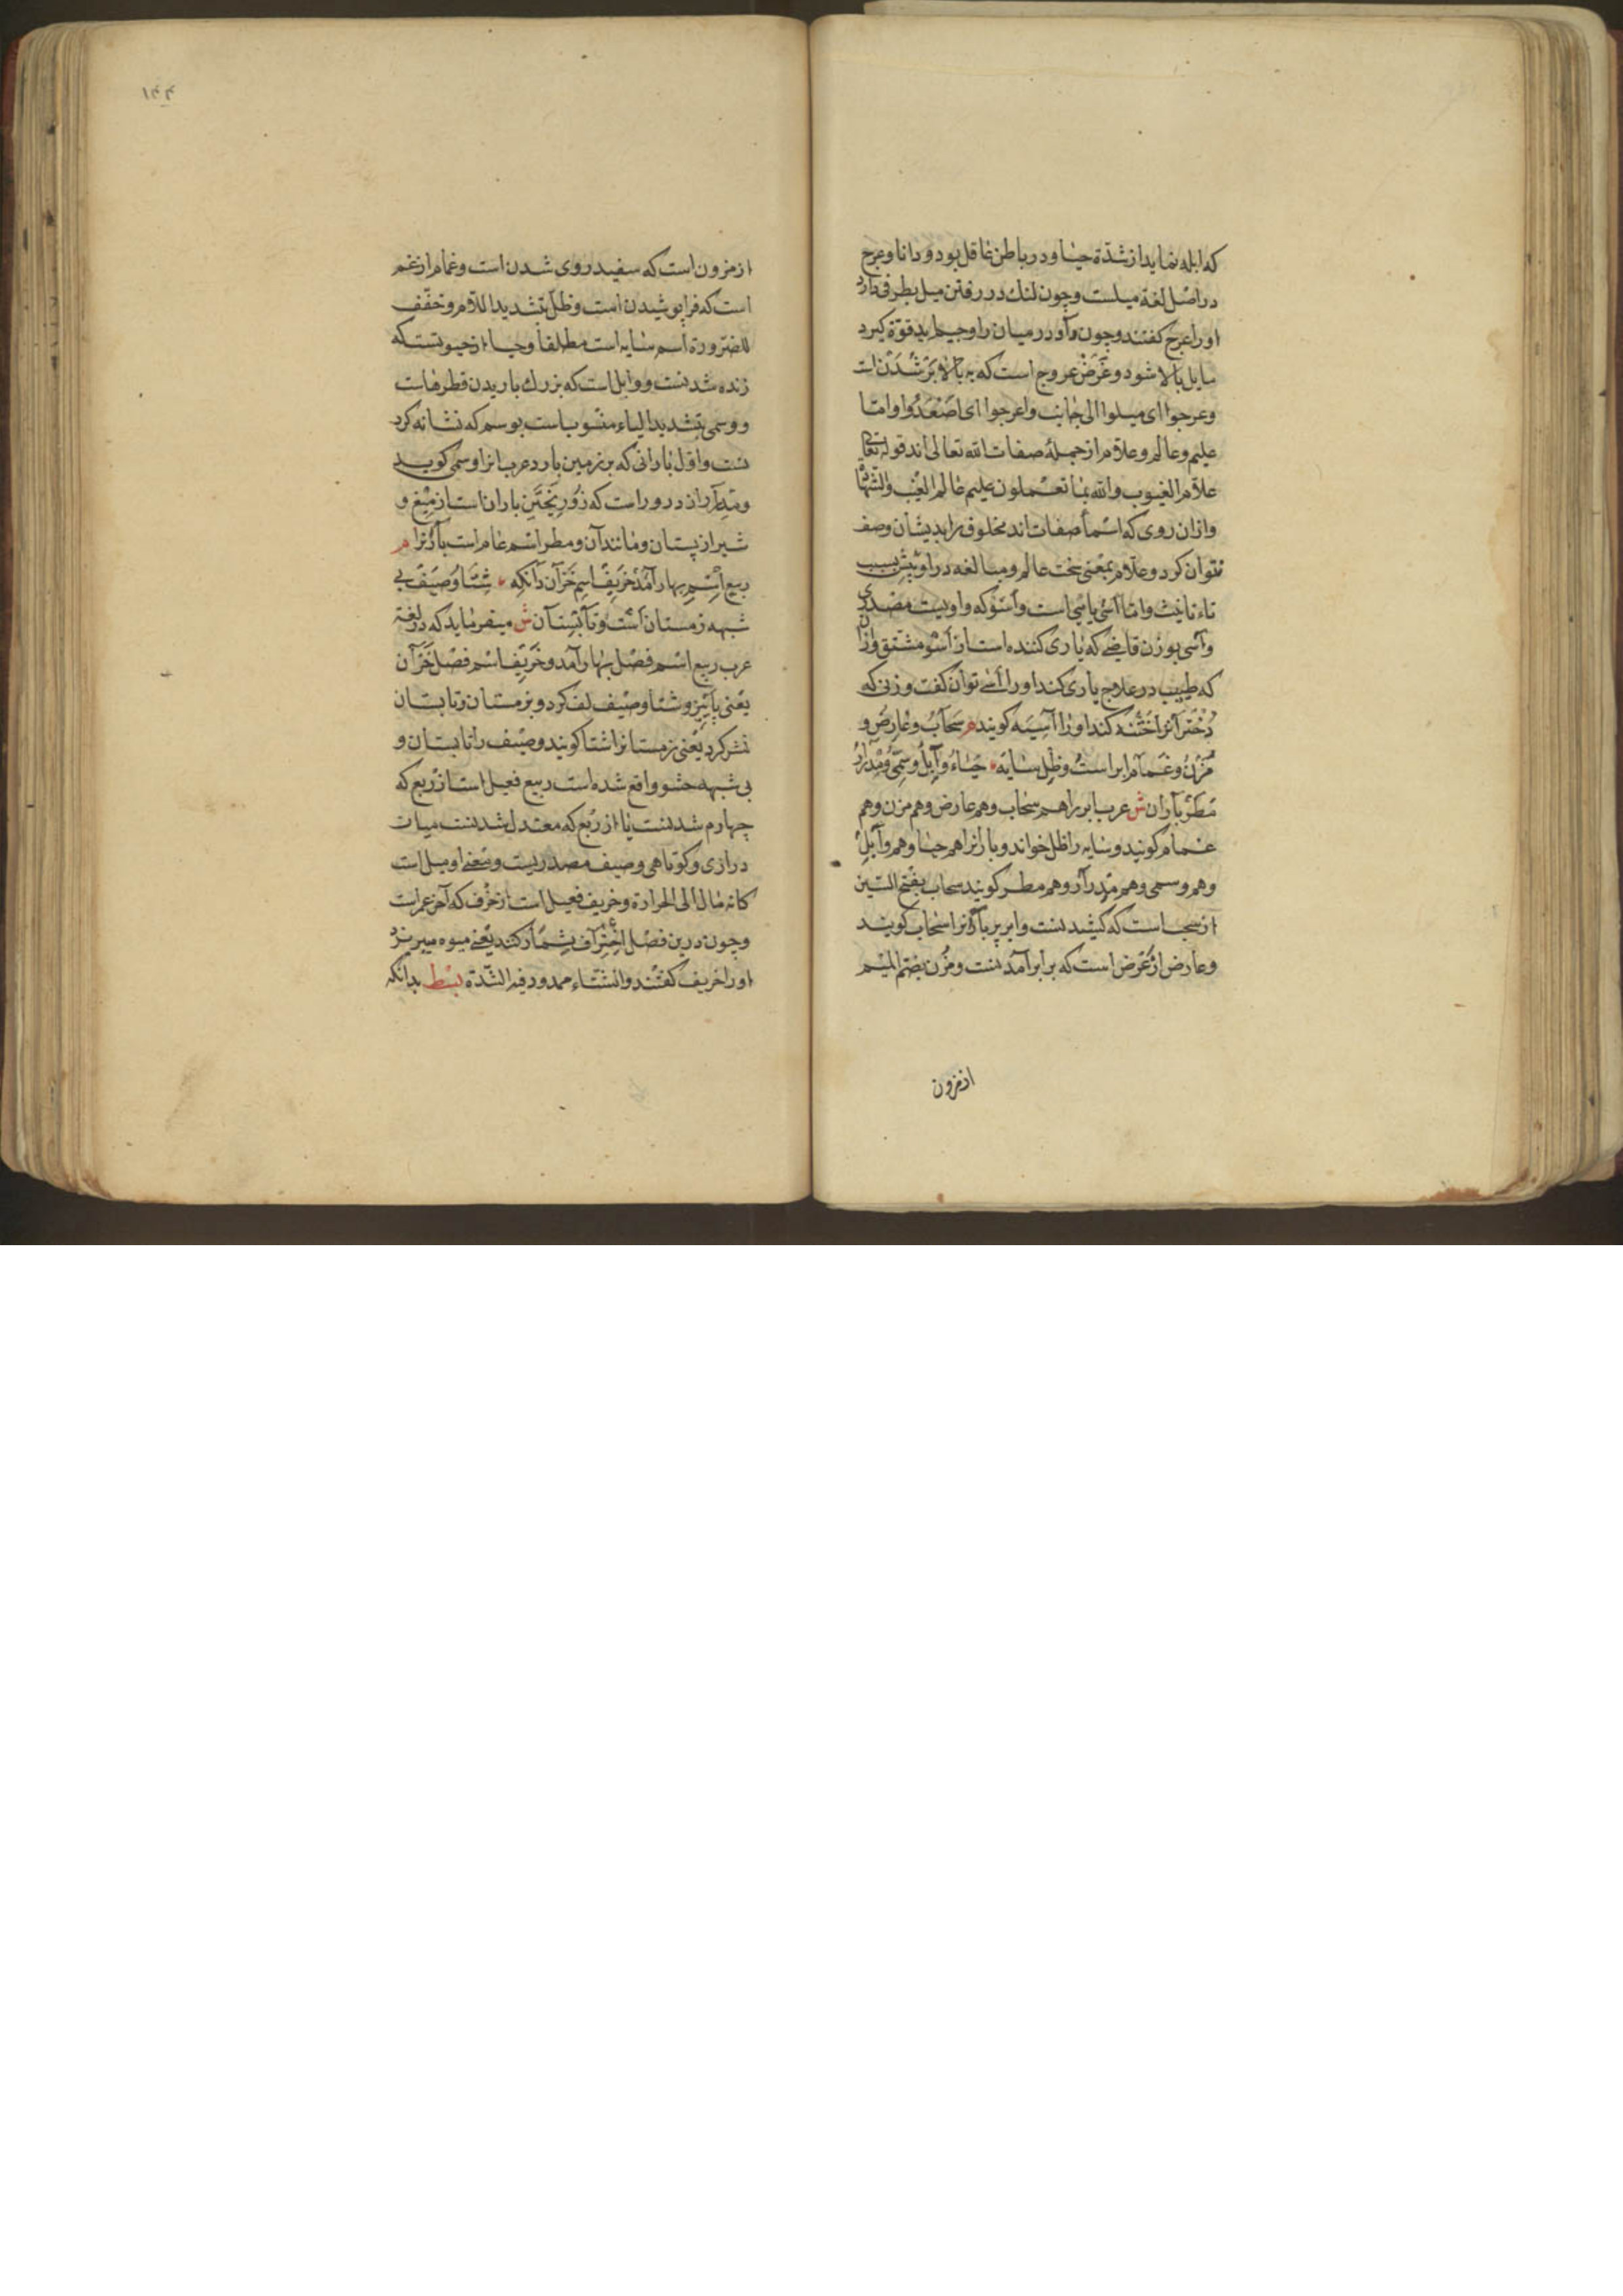 که ابله نماید از شدّة حیا و در باطن عاقل بود و دانا و عرج
در اصل لغة میلست و چون لنك در رفتن میل بطرفی دارد
او را عرج کفتند و چون واو در میان را و جیم اید قوّة کیرد
مایل ببالا شود و غرض عروج است که به بالا برشدنست
وعرجوا ای میلوا الی جانب واعرجوا ای اصعدوا و امّا
علیم و عالم و علّام از جملهٔ صفات الله تعالی اند قوله تعالی
علّام الغیوب والله بما تعملون علیم عالم الغیب والشهادة
وازان روی که اسمأ صفات اند مخلوق را بدیشان وصف
نتوان کرد و علّام بمعنی سخت عالم و مبالغه در او بیش بسبب
تاء تانیث و امّا أسی یاسی است و أسو که واویست مصدری
وآسی بوزن قاضی که یاری کننده است از أسو مشتق وازان
که طبیب در علاج یاری کند او را آسی توان کفت و زنی که
دخترانرا ختنه کند او را آسیه کویند م سحاب و عارض و
مزن و غمام ابر است و ظل سایه حیاء وابل وسمی و مدرار
مطر باران ش عرب ابر را هم سحاب و هم عارض و هم مزن و هم
غمام کویند و سایه را ظل خواند و بارانرا هم حیا و هم وابل
و هم وسمی و هم مدرار و هم مطر کویند سحاب بفتح السّین
از سحب است که کشیدنست و ابر پر بارانرا سحاب کویند
و عارض از عرض است که برابر آمدنست و مزن بضمّ المیم
از مزون
١٤٤
از مزون است که سفید روی شدن است و غمام از غم
است که فرا پوشیدن است و ظلّ بتشدید اللّام و تخفّف
للضرورة اسم سایه است مطلقا و حیا از حیوتست که
زنده شدنست و وابل است که بزرك باریدن قطرهاست
و وسمی بتشدید الیاء منسوب است بوسم که نشانه کرد
نست و اوّل بارانی که بر زمین بارد عرب انرا وسمی کویند
ومدرار از درور است که زور ریختن باران است از میغ و
شیر از پستان و مانند آن و مطر اسم عام است بارانرا م
ربیع اسم بهار آمد خریف اسم خزان دانکه شتا و صیف بی
شبهه زمستان است و تابستان ش میفرماید که در لغة
عرب ربیع اسم فصل بهار آمد و خریف اسم فصل خزان
یعنی پاییز و شتا و صیف لف کرد و بزمستان و تابستان
نشر کرد یعنی زمستانرا شتا کویند و صیف را تابستان و
بی شبهه حشو واقع شده است ربیع فعیل است از ربع که
چهارم شدنست یا از ربع که معتدل شدنست میان
درازی و کوتاهی و صیف مصدریست و معنی او میل است
کانه مال الی الحرارة و خریف فعیل است از خرف که آخر عمر است
و چون درین فصل اختراف بشمار کنند یعنی میوه میبرند
او را خریف کفتند و الشتاء ممدود فیه الشّدّة بسط بدانکه